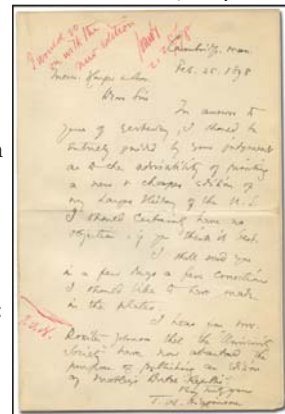 I would go
on with the
new edition
2. 26/98
Cambridge, Mass
Feb. 25. 1898
Messrs. Harper
Dear Sirs
In answer to
yours of yesterday, I should be
entirely guided by your judgment
as to the advisability of printing
a new & cheaper edition of
my Larger History of the U.S.
I should certainly have no
objection, if you think it best.
I shall send you
in a few days a few corrections
I should like to have made
in the plates.
I hear from Mr.
Rossiter Johnson that the University
Society have now abandoned the
purpose of publishing an edition
of my
Very truly yours
T. W. Higginson